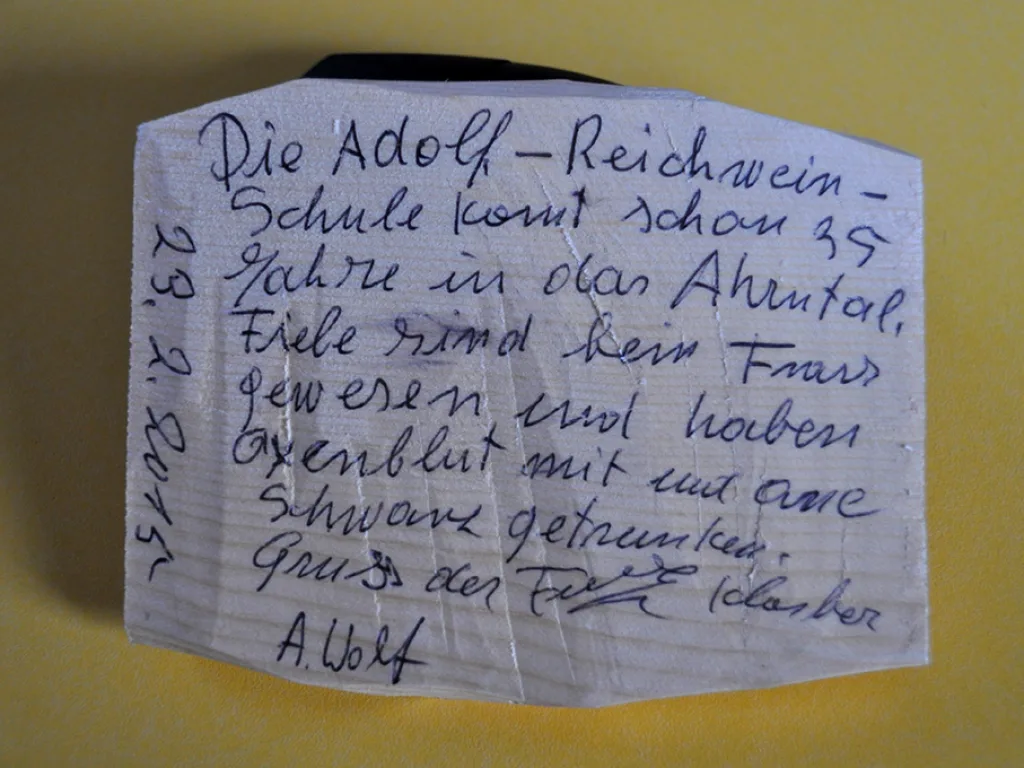 Die Adolf-Reichwein-
Schule komt schon 35
Jahre in das Ahrntal.
Fiele sind beim Franz
gewesen und haben
Oxenblut mit und one
Schwanz getrunken.
Gruss der
A. Wolf
23. 2. 2015